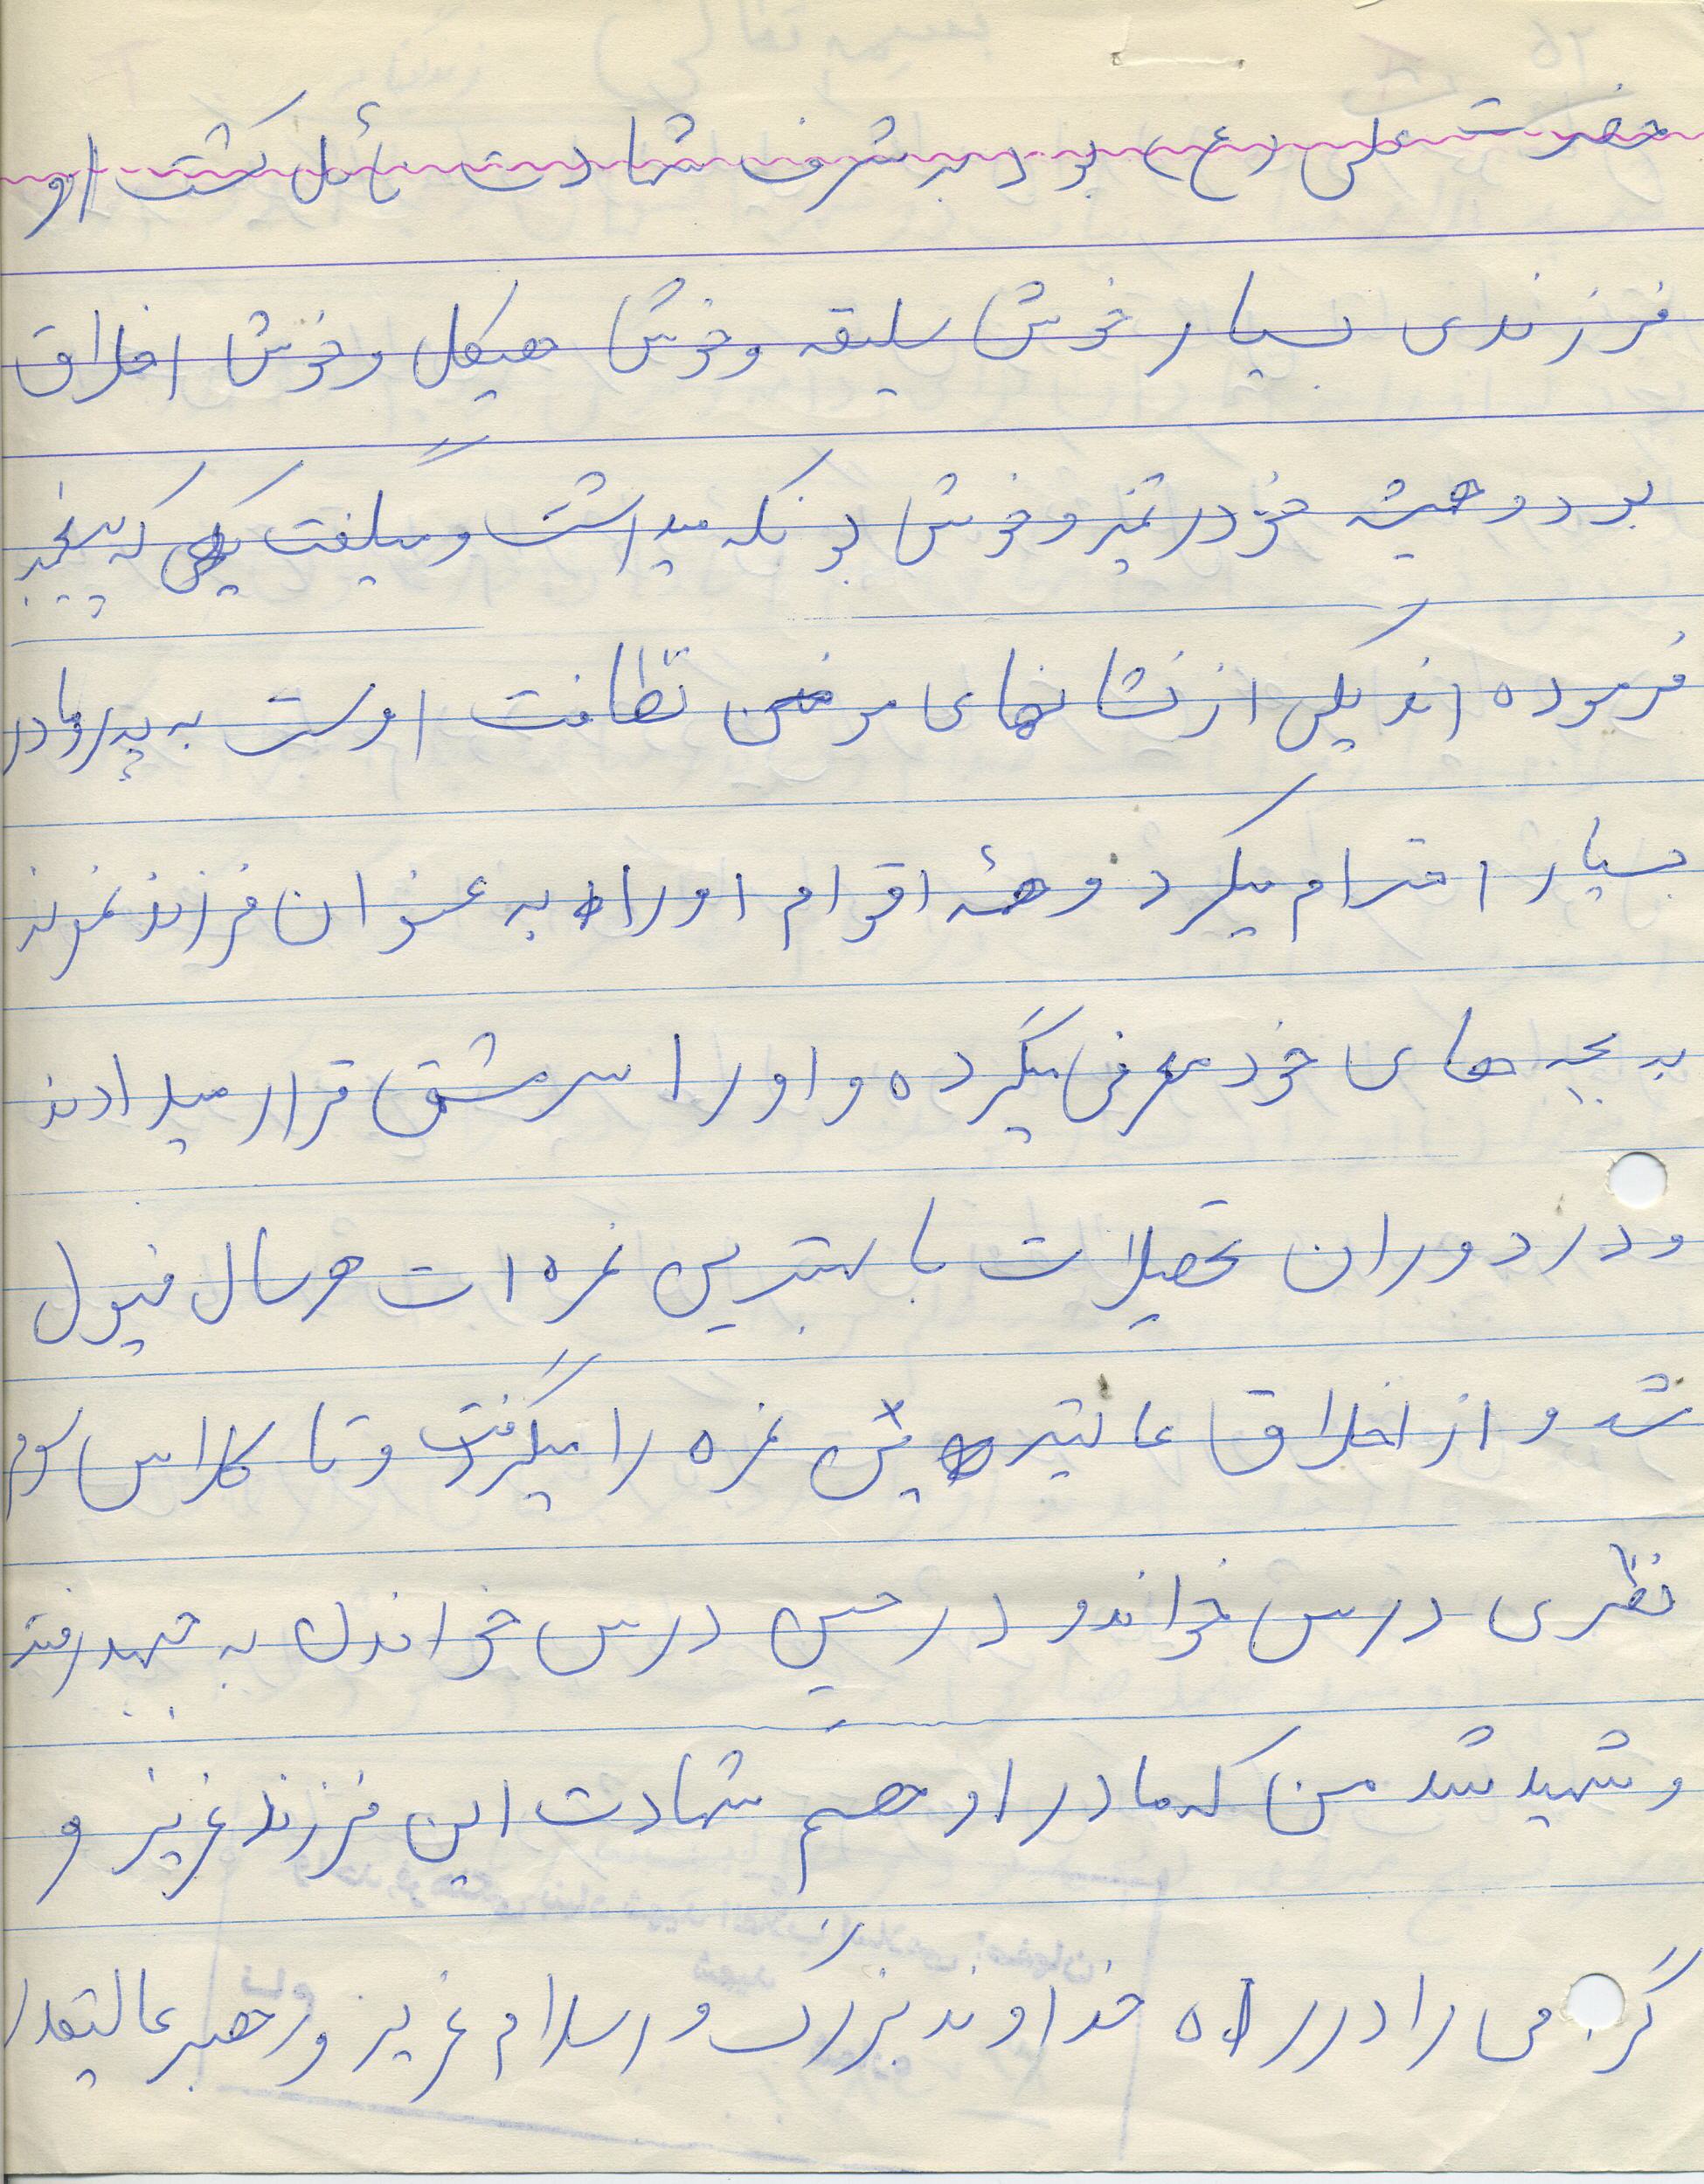 حضرت علی (ع) بود به شرف شهادت نائل گشت او
فرزندی بسیار خوش سلیقه و خوش هیکل و خوش اخلاق
بود و همیشه خود را تمیز و خوش بو نگه میداشت و میگفت که پیغمبر
فرموده اند یکی از نشانهای مومن نظافت اوست به پدر و مادر
بسیار احترام میکرد و همهٔ اقوام او را به عنوان فرزند نمونه
به بچه های خود معرفی میکرده و او را سرمشق قرار میدادند
و در دوران تحصیلات با بهترین نمره ات هر سال قبول
شد و از اخلاق عالیترین نمره را میگرفت و تا کلاس سوم
نظری درس خواند و در حین درس خواندن به جبهه رفته
و شهید شد من که مادر او هستم شهادت این فرزند عزیز و
گرامی را در راه خداوند بزرگ و اسلام عزیز و رهبر عالیقدر